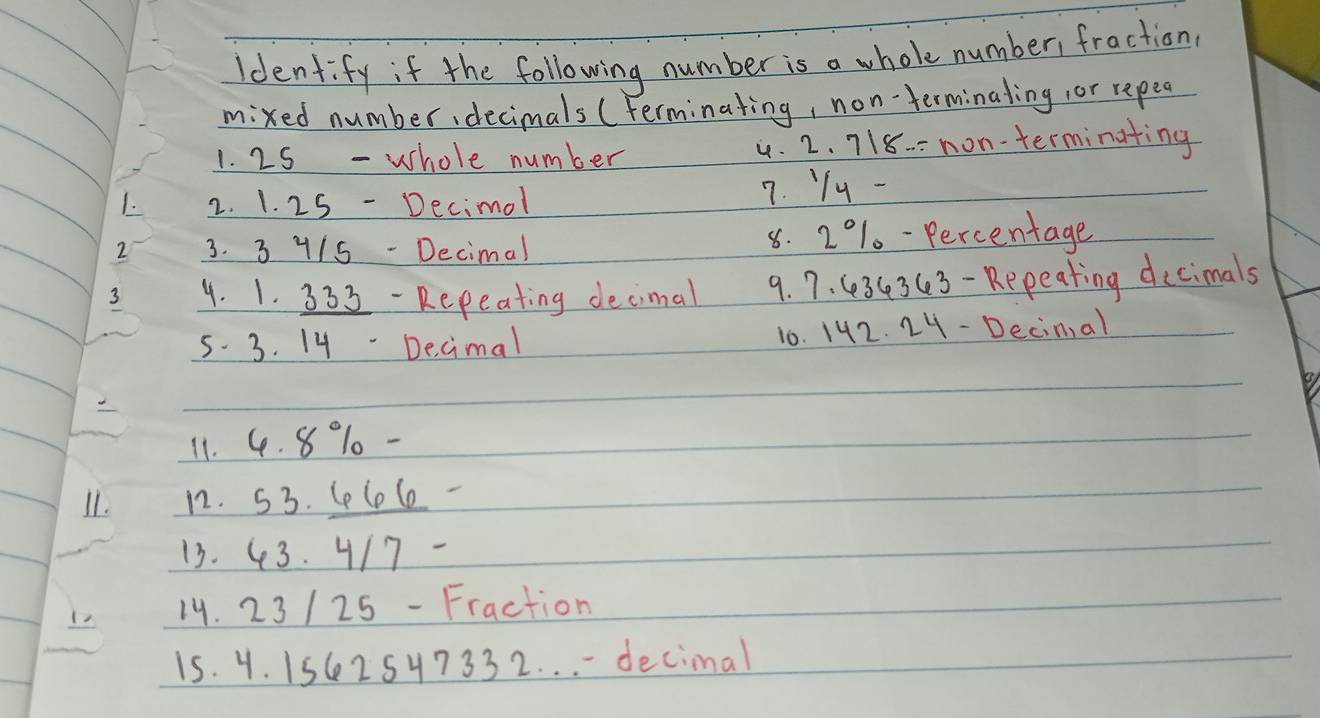 Identify if the following number is a whole number, fraction,
mixed number, decimals (terminating, non-terminating, or repea
1. 25 - Whole number
2. 1.25 - Decimal
3. 3 4/5 - Decimal
4. 1.333 - Repeating decimal
5. 3.14 - Decimal
6. 2.718... - non-terminating
7. 1/4 -
8. 2% - Percentage
9. 7.636363 - Repeating decimals
10. 142.24 - Decimal
11. 6.8% -
12. 53.666 -
13. 63. 4/7 -
14. 23/25 - Fraction
15. 4.1562547332... - decimal
1.
2
3
11.